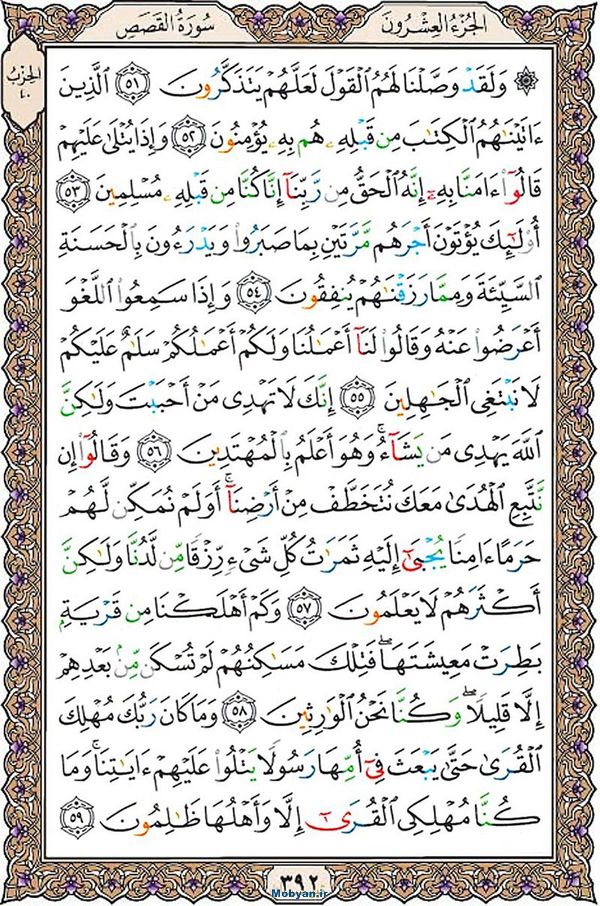 الجزء العشرون
سورة القصص
الحزب
٤٠
۞ وَلَقَدْ وَصَّلْنَا لَهُمُ ٱلْقَوْلَ لَعَلَّهُمْ يَتَذَكَّرُونَ ٥١ ٱلَّذِينَ
ءَاتَيْنَٰهُمُ ٱلْكِتَٰبَ مِن قَبْلِهِۦ هُم بِهِۦ يُؤْمِنُونَ ٥٢ وَإِذَا يُتْلَىٰ عَلَيْهِمْ
قَالُوٓا۟ ءَامَنَّا بِهِۦٓ إِنَّهُ ٱلْحَقُّ مِن رَّبِّنَآ إِنَّا كُنَّا مِن قَبْلِهِۦ مُسْلِمِينَ ٥٣
أُو۟لَٰٓئِكَ يُؤْتَوْنَ أَجْرَهُم مَّرَّتَيْنِ بِمَا صَبَرُوا۟ وَيَدْرَءُونَ بِٱلْحَسَنَةِ
ٱلسَّيِّئَةَ وَمِمَّا رَزَقْنَٰهُمْ يُنفِقُونَ ٥٤ وَإِذَا سَمِعُوا۟ ٱللَّغْوَ
أَعْرَضُوا۟ عَنْهُ وَقَالُوا۟ لَنَآ أَعْمَٰلُنَا وَلَكُمْ أَعْمَٰلُكُمْ سَلَٰمٌ عَلَيْكُمْ
لَا نَبْتَغِى ٱلْجَٰهِلِينَ ٥٥ إِنَّكَ لَا تَهْدِى مَنْ أَحْبَبْتَ وَلَٰكِنَّ
ٱللَّهَ يَهْدِى مَن يَشَآءُ ۚ وَهُوَ أَعْلَمُ بِٱلْمُهْتَدِينَ ٥٦ وَقَالُوٓا۟ إِن
نَّتَّبِعِ ٱلْهُدَىٰ مَعَكَ نُتَخَطَّفْ مِنْ أَرْضِنَآ ۚ أَوَلَمْ نُمَكِّن لَّهُمْ
حَرَمًا ءَامِنًا يُجْبَىٰٓ إِلَيْهِ ثَمَرَٰتُ كُلِّ شَىْءٍ رِّزْقًا مِّن لَّدُنَّا وَلَٰكِنَّ
أَكْثَرَهُمْ لَا يَعْلَمُونَ ٥٧ وَكَمْ أَهْلَكْنَا مِن قَرْيَةٍۭ
بَطِرَتْ مَعِيشَتَهَا ۖ فَتِلْكَ مَسَٰكِنُهُمْ لَمْ تُسْكَن مِّنۢ بَعْدِهِمْ
إِلَّا قَلِيلًا ۖ وَكُنَّا نَحْنُ ٱلْوَٰرِثِينَ ٥٨ وَمَا كَانَ رَبُّكَ مُهْلِكَ
ٱلْقُرَىٰ حَتَّىٰ يَبْعَثَ فِىٓ أُمِّهَا رَسُولًا يَتْلُوا۟ عَلَيْهِمْ ءَايَٰتِنَا ۚ وَمَا
كُنَّا مُهْلِكِى ٱلْقُرَىٰٓ إِلَّا وَأَهْلُهَا ظَٰلِمُونَ ٥٩
٣٩٢
Mobyan.ir